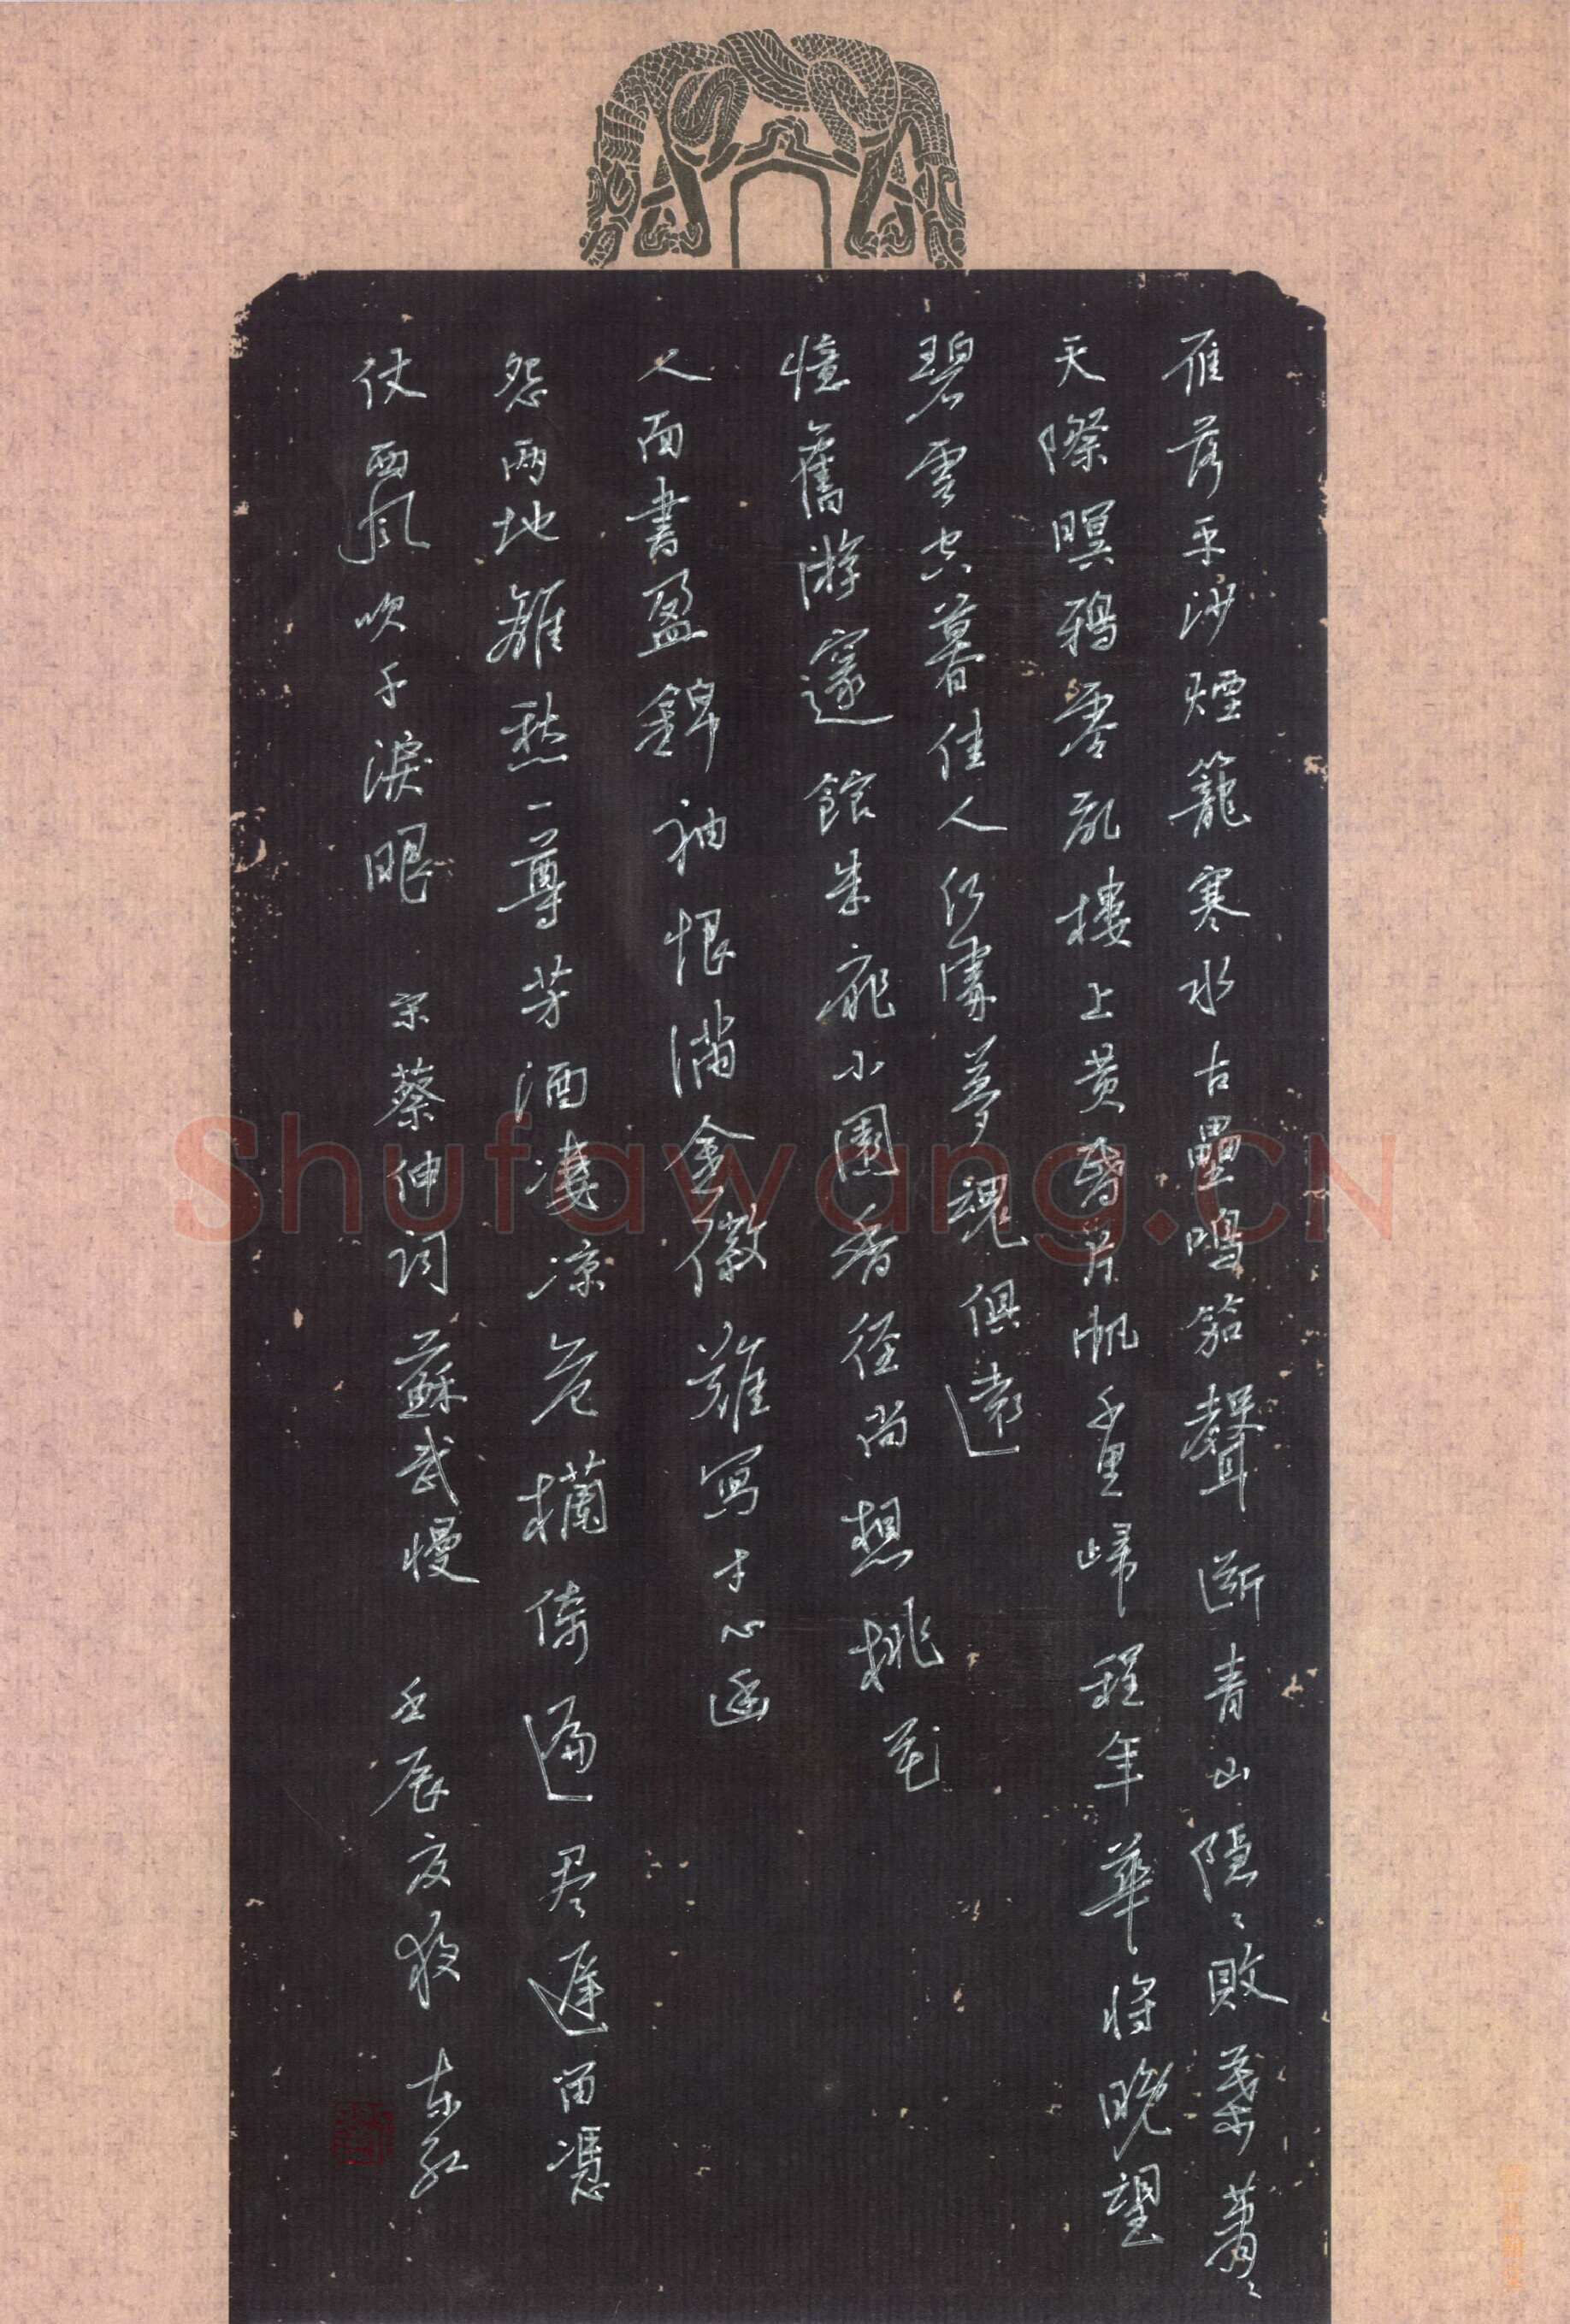 雁落平沙煙籠寒水古壘鳴笳聲斷青山隱〻敗葉蕭〻
天際暝鴉零乱樓上黄昏片帆千里歸程年華將晚望
碧雲空暮佳人何處夢魂俱遠
憶舊游邃館朱扉小園香径尚想桃花
人面書盈錦袖恨滿金徽難寫寸心幽
怨兩地離愁一尊芳酒凄凉危欄倚遍尽遲留憑
仗西風吹干淚眼 宋蔡伸詞蘇武慢 壬辰夏
Shufawang.CN